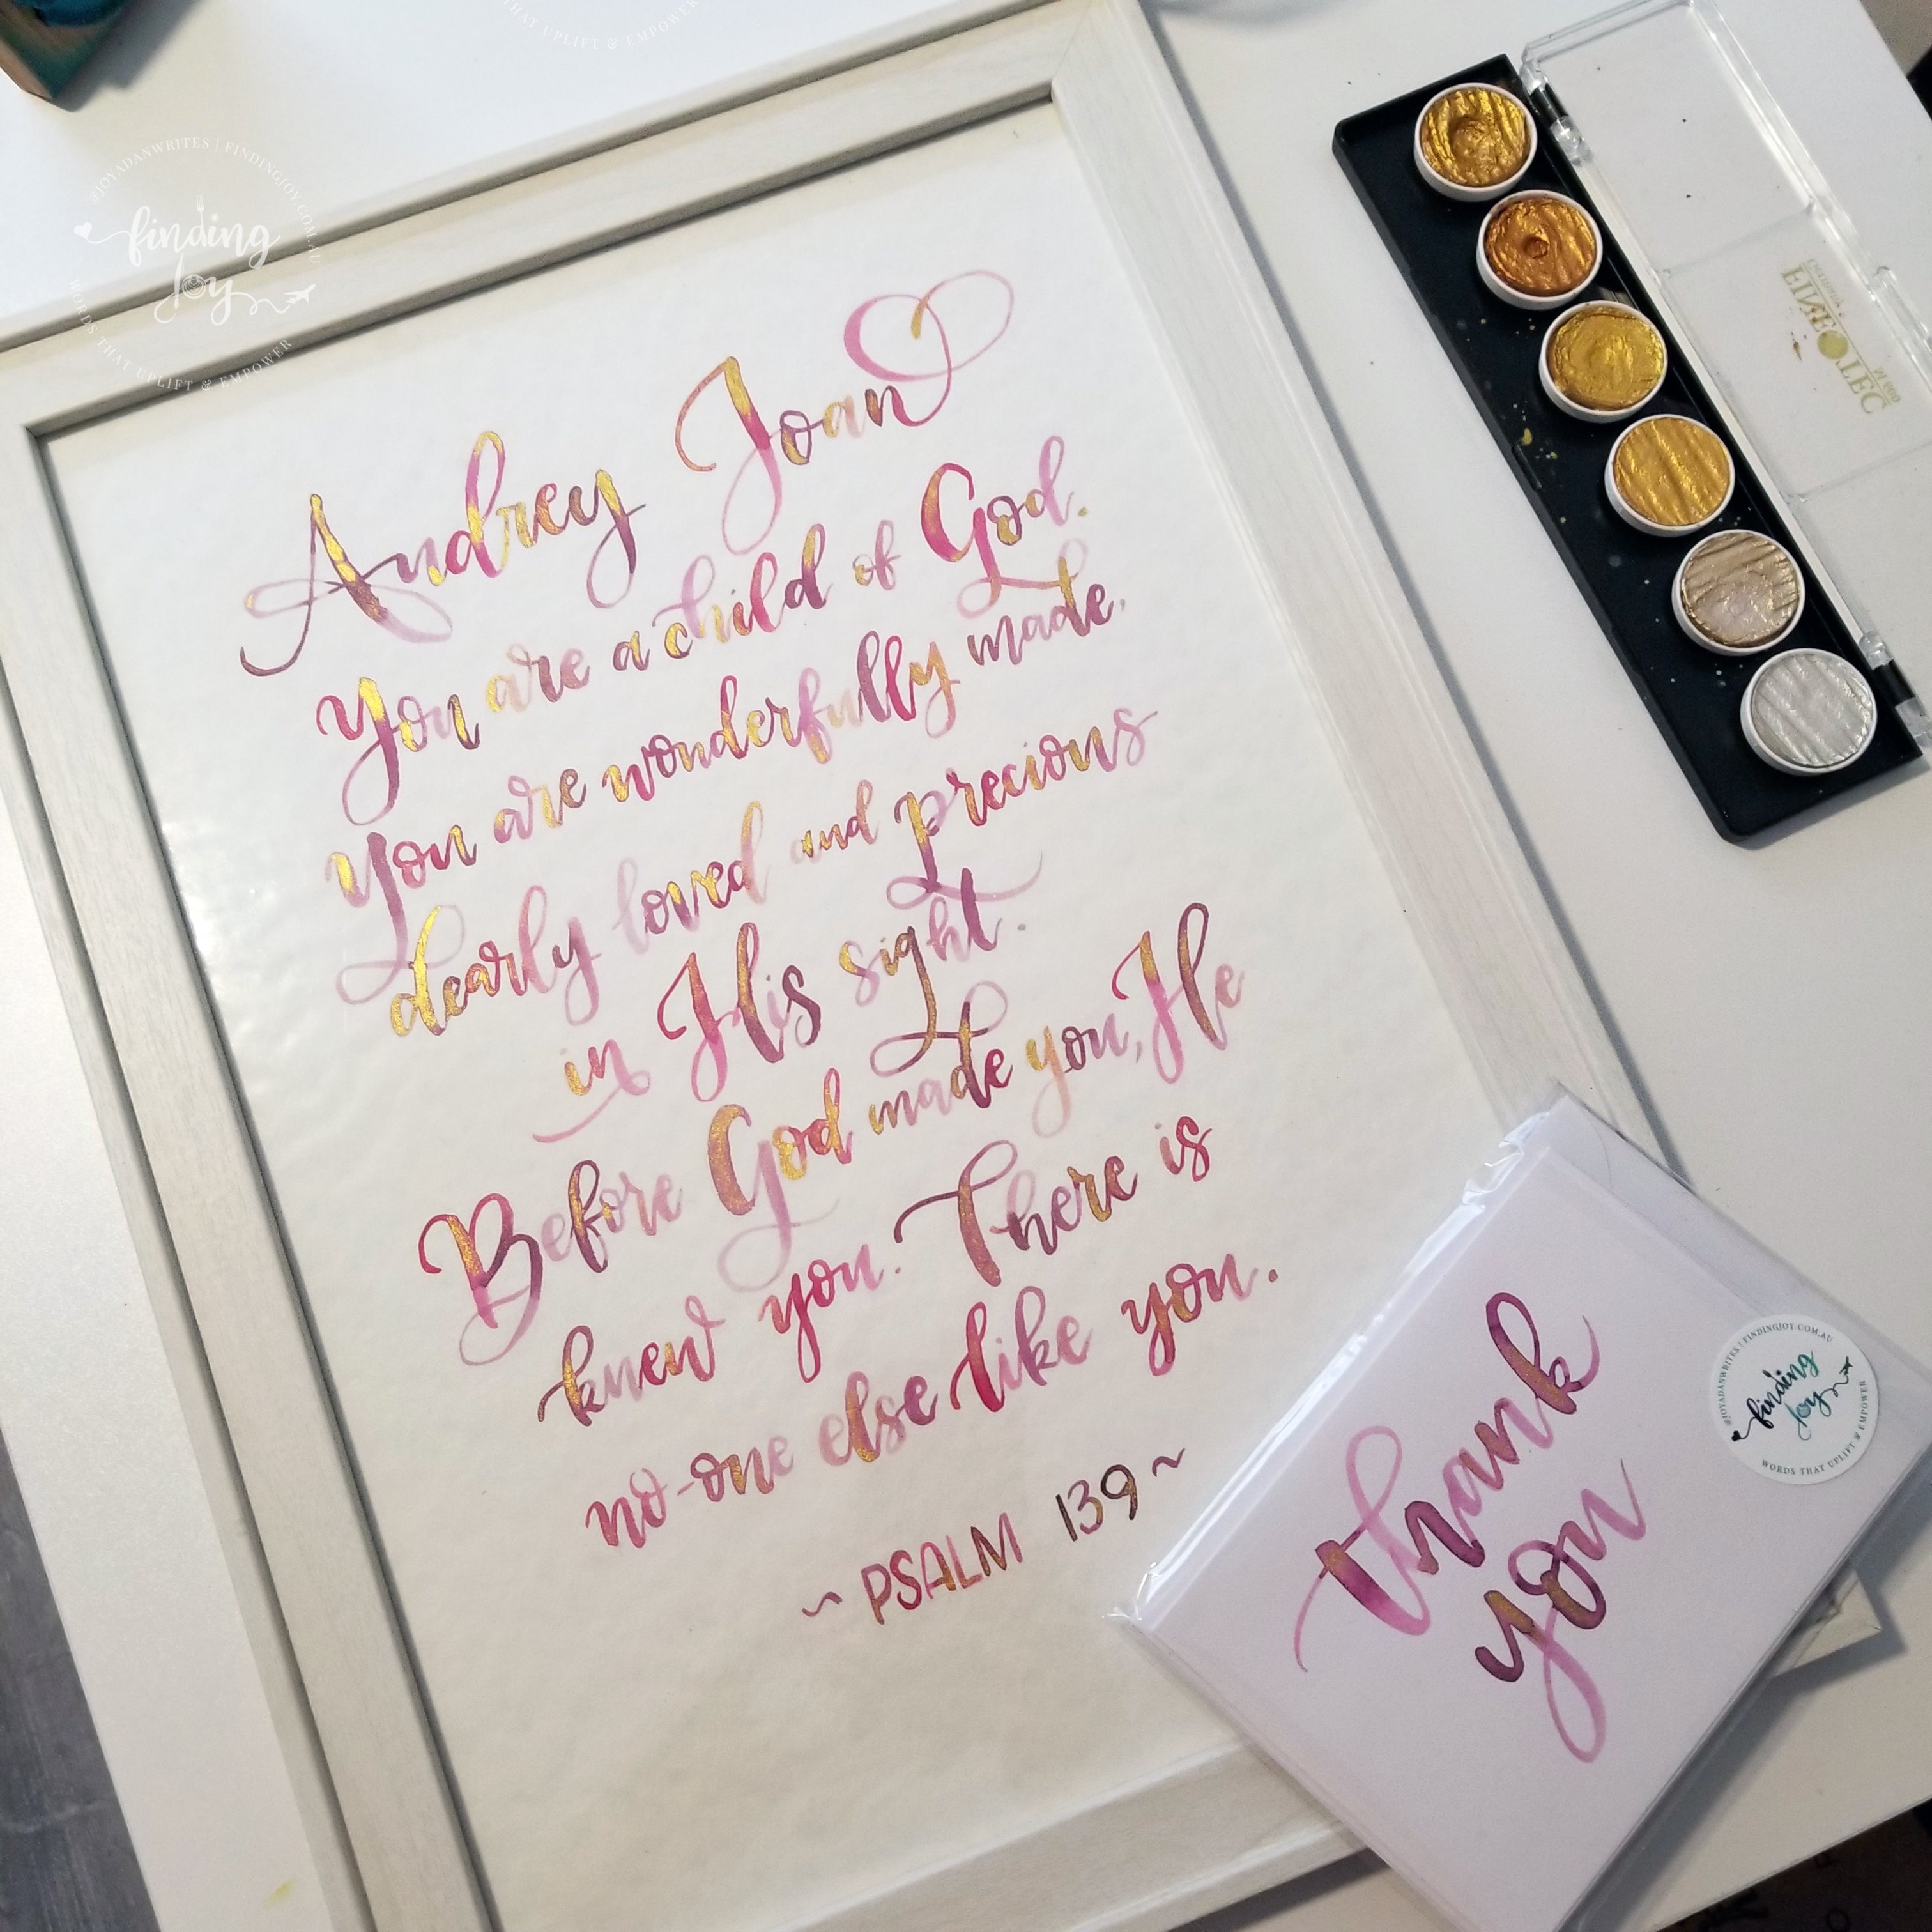 THAT UPLIFT & EMPOWER
@JOYADANWRITES | FINDINGJOY.COM.AU
finding
Joy
WORDS THAT UPLIFT & EMPOWER
Audrey Joan
You are a child of God.
You are wonderfully made,
dearly loved and precious
in His sight.
Before God made you, He
knew you. There is
no-one else like you.
~ PSALM 139 ~
FINETEC
thank
you
@JOYADANWRITES | FINDINGJOY.COM.AU
finding
Joy
WORDS THAT UPLIFT & EMPOWER